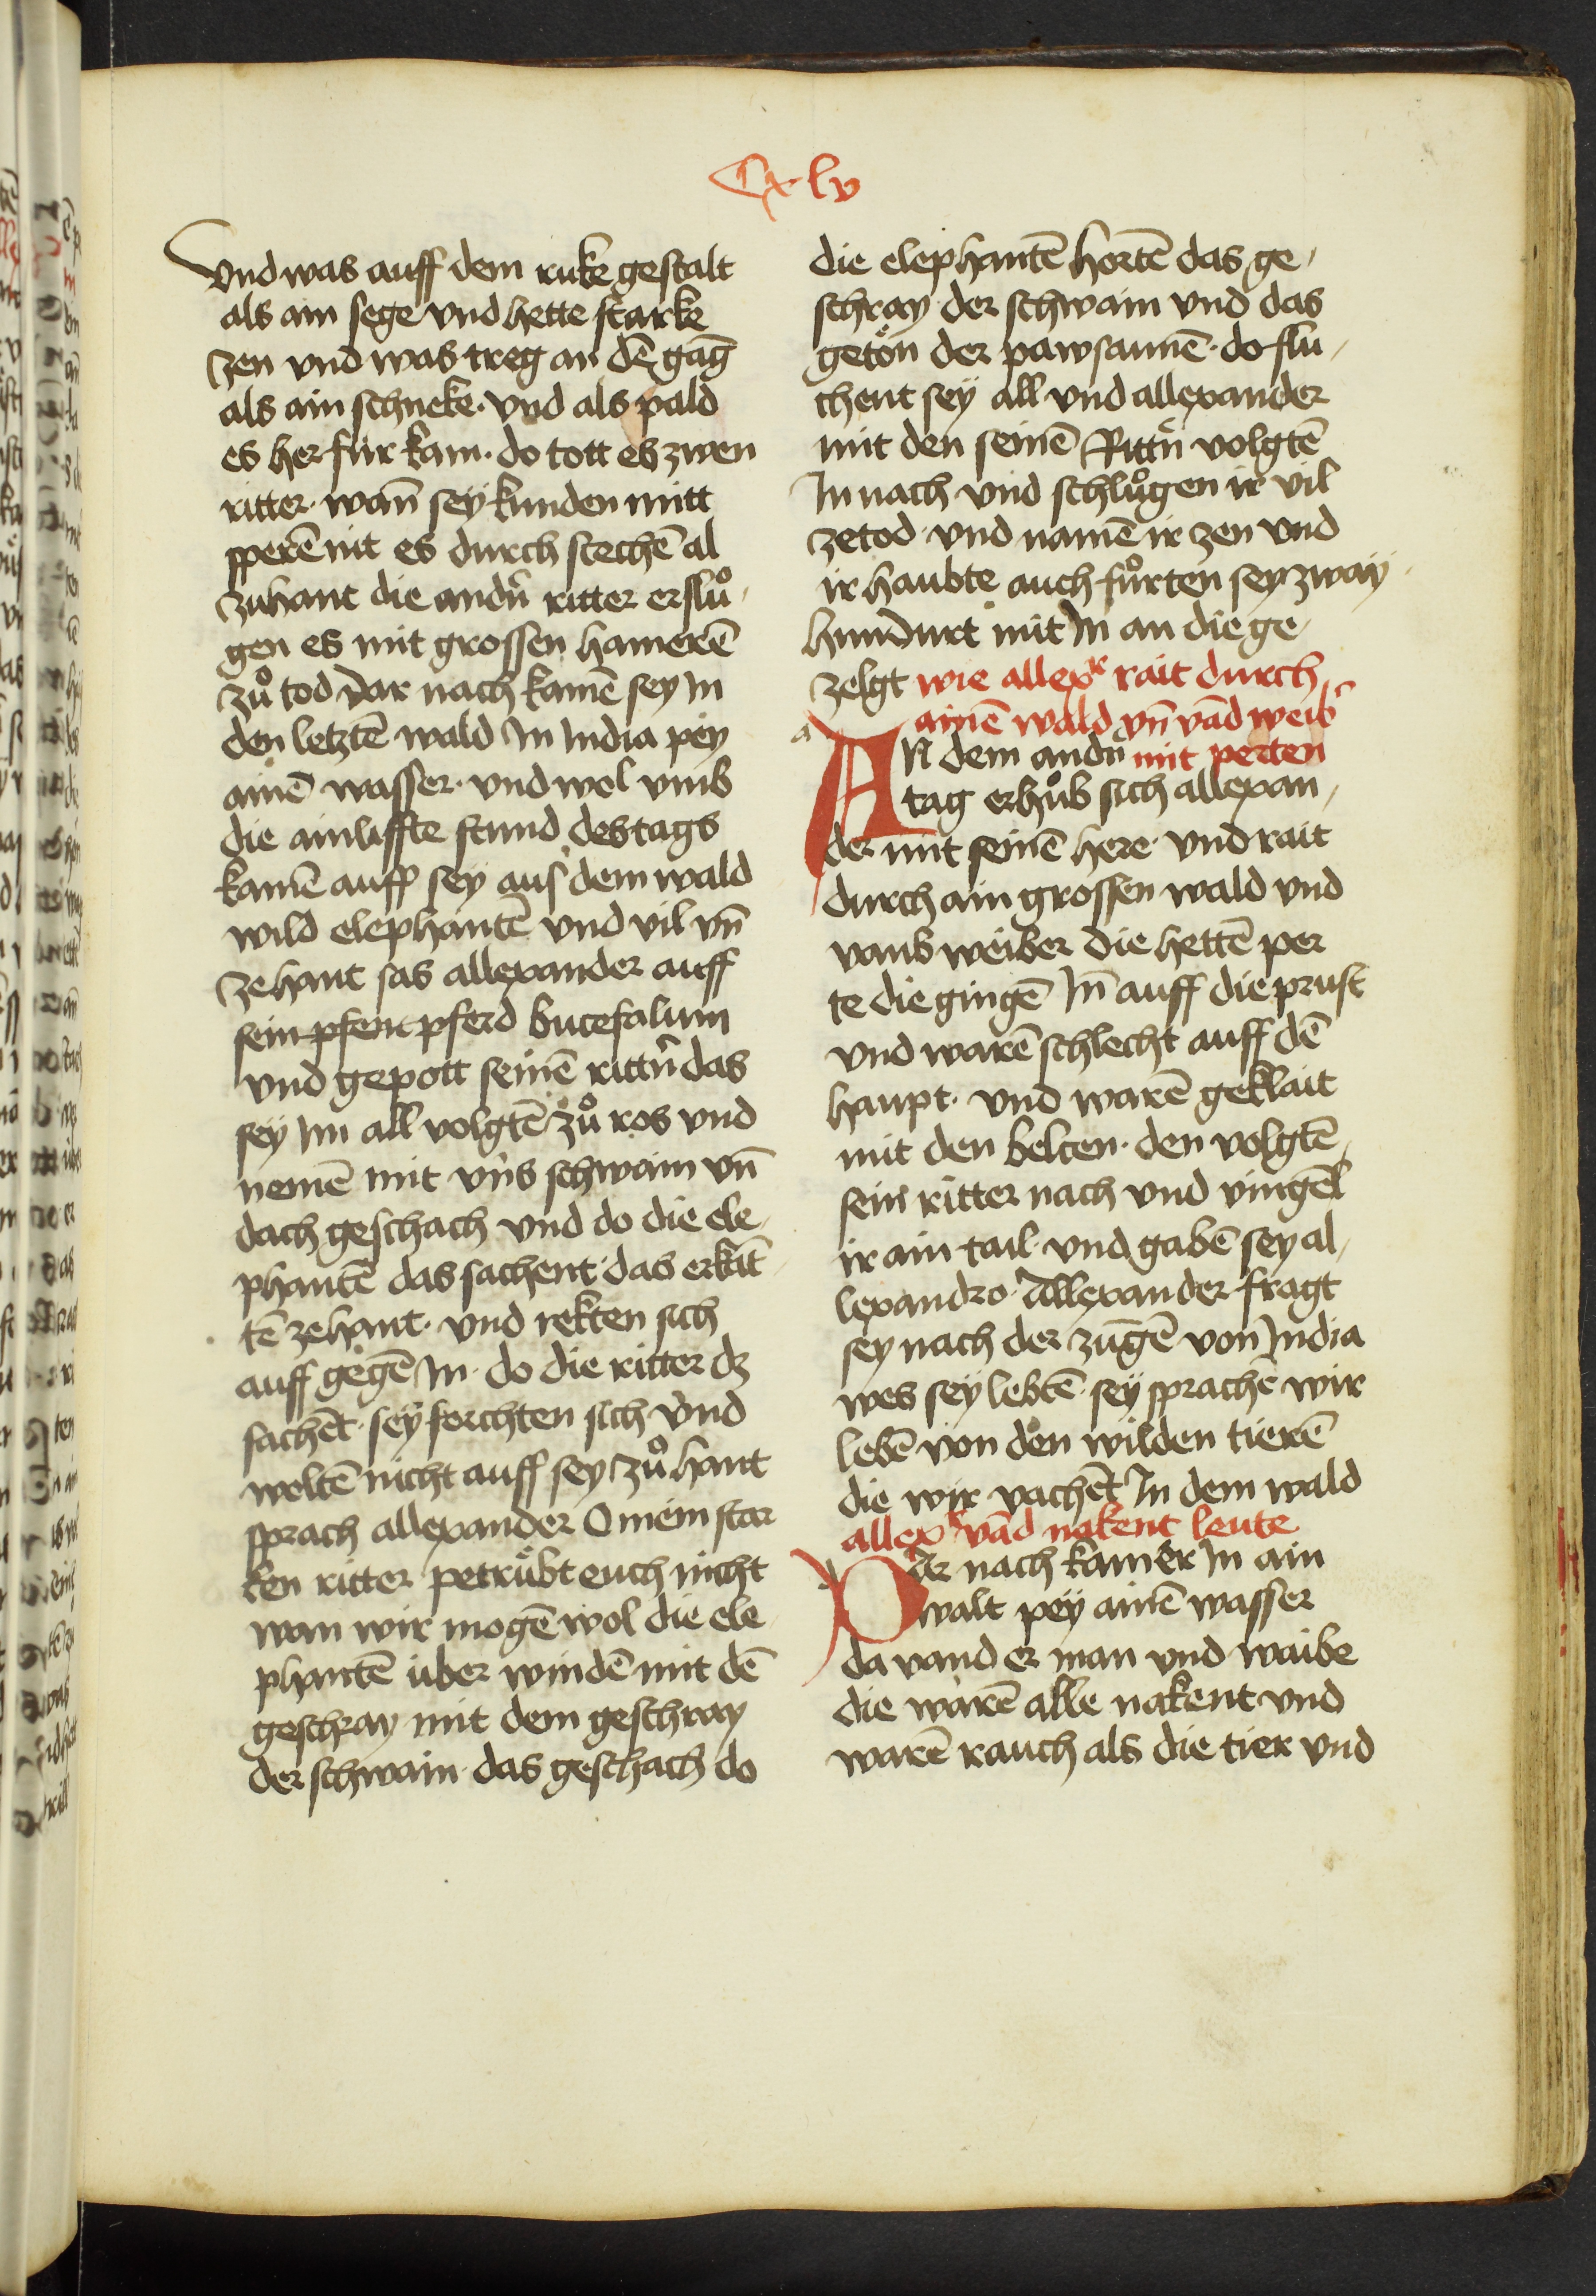 Cxlv
Vnd was auff dem ruke gestalt
als ain sege vnd hette starke
zen vnd was treg an dē gāg
als ain schneke· vnd als pald
es her für kam· do tott es zwen
ritter· wañ seÿ kunden mitt
sperē nit es durch stechē al
zuhant die andn̄ ritter erslů
gen es mit grossen hamerē
zů tod dar nach kamē sey In
den letztē wald In India peÿ
ainē wasser· vnd wol vmb
die ainliffte stund des tags
kamē auff seÿ aus dem wald
wild elephantē vnd vil vn̄
zehant sas allexander auff
sein pfent pferd bucefalum
vnd gepott seinē rittn̄ das
seÿ Im all volgtē zů ros vnd
nemē mit vns schwain vn̄
dach geschach vnd do die ele
phantē das sachent· das erkāt
tē zehant· vnd rekten sich
auff gegē In· do die ritter dz
sachēt· seÿ forchten sich vnd
woltē nicht auff seÿ zů hant
sprach allexander O mein star
ken ritter petrübt euch nicht
wan wir mogē wol die ele
phantē über windē mit dē
geschray mit dem geschray
der schwain· das geschach do
die elephantē hortē das ge,
schray· der schwain vnd das
getön der pawsaumē· do flu,
chent seÿ all vnd allexander
mit den seinē Rittn̄ volgtē
In nach vnd schlůgen ir vil
zetod· vnd namē ir zen vnd
ir haubte auch fůrten sey zwaÿ
hundurt mit In an die ge,
zelgt wie allexr rait durch
ainē wald vn̄ vād weib
a
AN dem andn̄ mit perten
tag erhůb sich allexan,
der mit seinē here· vnd rait
durch ain grossen wald vnd
vand weiber die hettē per
te die gingē In̄ auff die prust
vnd warē schlecht auff dē
haupt· vnd warē geklait
mit den belcen· den volgtē,
sein ritter nach vnd vingēt
ir ain tail· vnd gabē sey al,
lexandro· Allexander fragt
sey nach der zungē von India
wes seÿ lebtē· seÿ sprachē wir
lebē von den wilden tierē
die wir vachēt In dem wald
allexr vād nakent leute
d
Dar nach kam er In ain
walt peÿ ainē wasser
da vand er man vnd waibe
die warē alle nakent vnd
warē rauch als die tier vnd